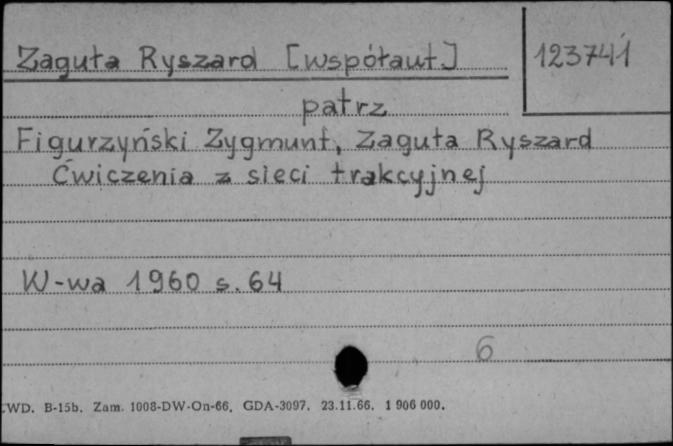 Zaguła Ryszard [współaut.]
123741
patrz
Figurzyński Zygmunt, Zaguła Ryszard
Ćwiczenia z sieci trakcyjnej
W-wa 1960 s. 64
6
WD. B-15b. Zam. 1008-DW-On-66. GDA-3097. 23.11.66. 1 906 000.